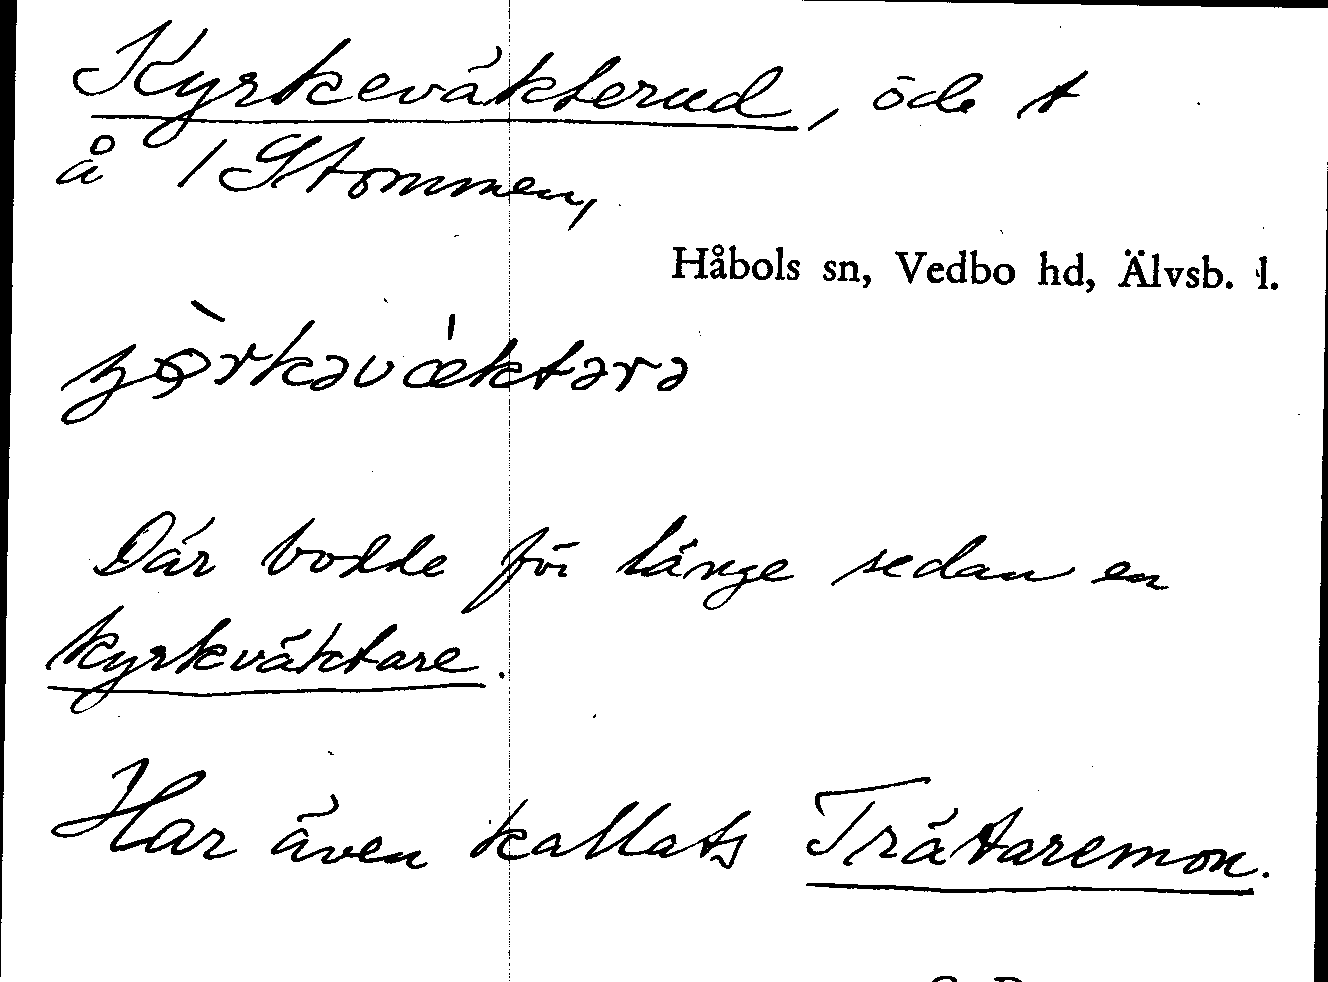 Kyrkeväkterud, öde t
å 1 Stommen,
Håbols sn, Vedbo hd, Älvsb. l.
Där bodde för länge sedan en
kyrkväktare.
Har även kallats Trätaremon.